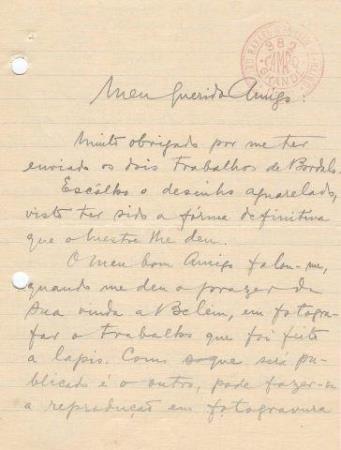 982
Meu Querido Amigo:
Muito obrigado por me ter
enviado os dois trabalhos de Bordalo.
Escôlho o desenho aguarelado,
visto ter sido a fórma definitiva
que o Mestre lhe deu.
O meu bom Amigo falou-me,
quando me deu o prazer da
sua vinda a Belem, em fotogra-
far o trabalho que foi feito
a lapis. Como o que será pu-
blicado é o outro, pode fazer-se
a reprodução em fotogravura